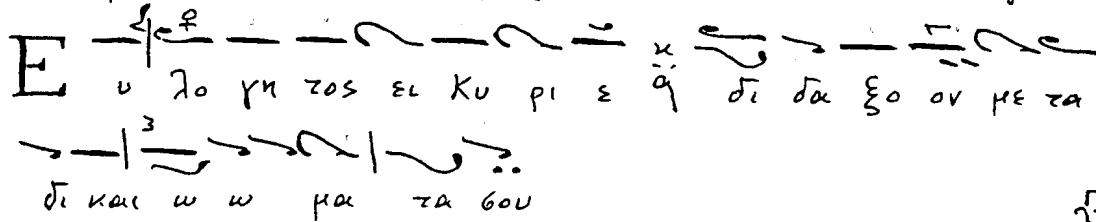 Ευ λο γη τος ει Κυ ρι ε δι δα ξο ον με τα
δι και ω ω μα τα σου